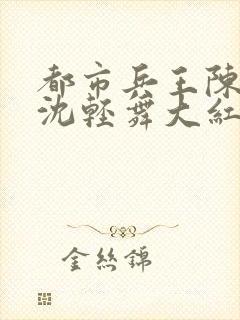 都市兵王陳
沈輕舞大紅
金絲錦